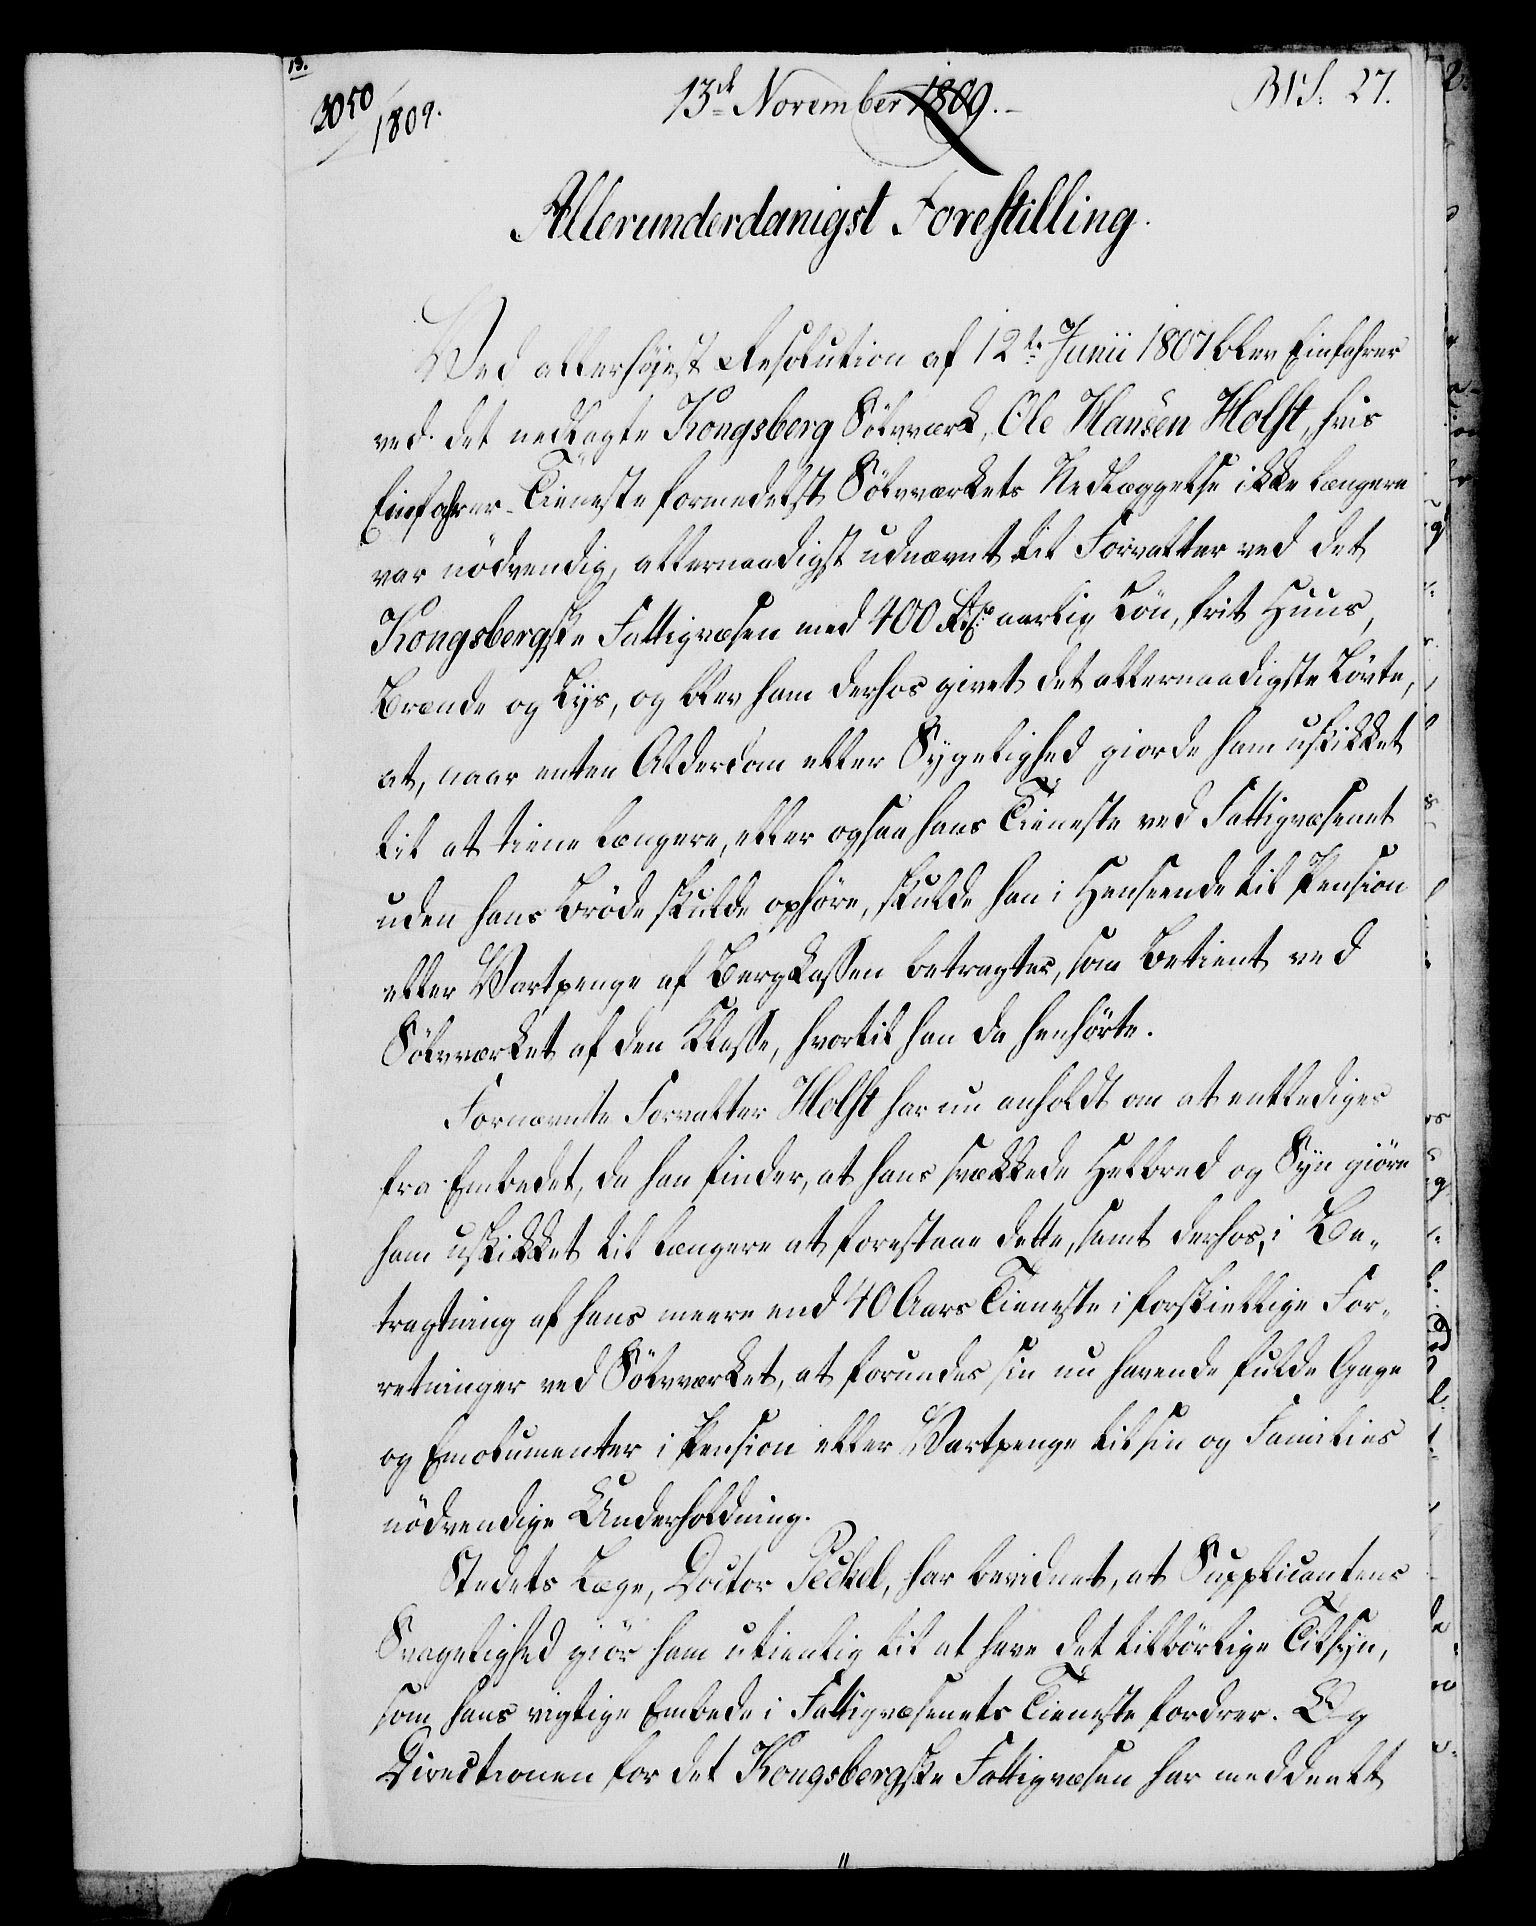 13.
3050/1809.
13de November 1809.
BTS: 27.
Allerunderdanigst Forestilling.
Ved allerhøjest Resolution af 12te Junii 1807 blev Einfahrer
ved det nedlagte Kongsberg Sölvværk, Ole Hansen Holst, hvis
Einfahrer-Tieneste formedelst Sölvværkets Nedlæggelse ikke længere
var nödvendig, allernaadigst udnævnt til Forvalter ved det
Kongsbergske Fattigvæsen med 400 Rd. aarlig Lön, frit Huus,
Brænde og Lys, og blev ham derhos givet det allernaadigste Lövte,
at, naar enten Alderdom eller Sygelighed giorde ham uskikket
til at tiene længere, eller ogsaa hans Tieneste ved Fattigvæsenet
uden hans Bröde skulde ophöre, skulde han i Henseende til Pension
eller Vartpenge af Bergkassen betragtes, som Betient ved
Sölvværket af den Klasse, hvortil han da henhörte.
Fornævnte Forvalter Holst har nu anholdt om at entlediges
fra Embedet, da han finder, at hans svækkede Helbred og Syn giöre
ham uskikket til længere at forestaae dette, samt derhos, i Be-
tragtning af hans meere end 40 Aars Tieneste i forskiellige For-
retninger ved Sölvværket, at forundes sin nu havende fulde Gage
og Emolumenter i Pension eller Vartpenge til sin og Families
nödvendige Underholdning.
Stedets Læge, Doctor Peckel, har bevidnet, at Supplicantens
Svagelighed giör ham utienlig til at have det tilbörlige Tilsyn,
som hans vigtige Embede i Fattigvæsenets Tieneste fordrer. Og
Directionen for det Kongsbergske Fattigvæsen har meddeelt